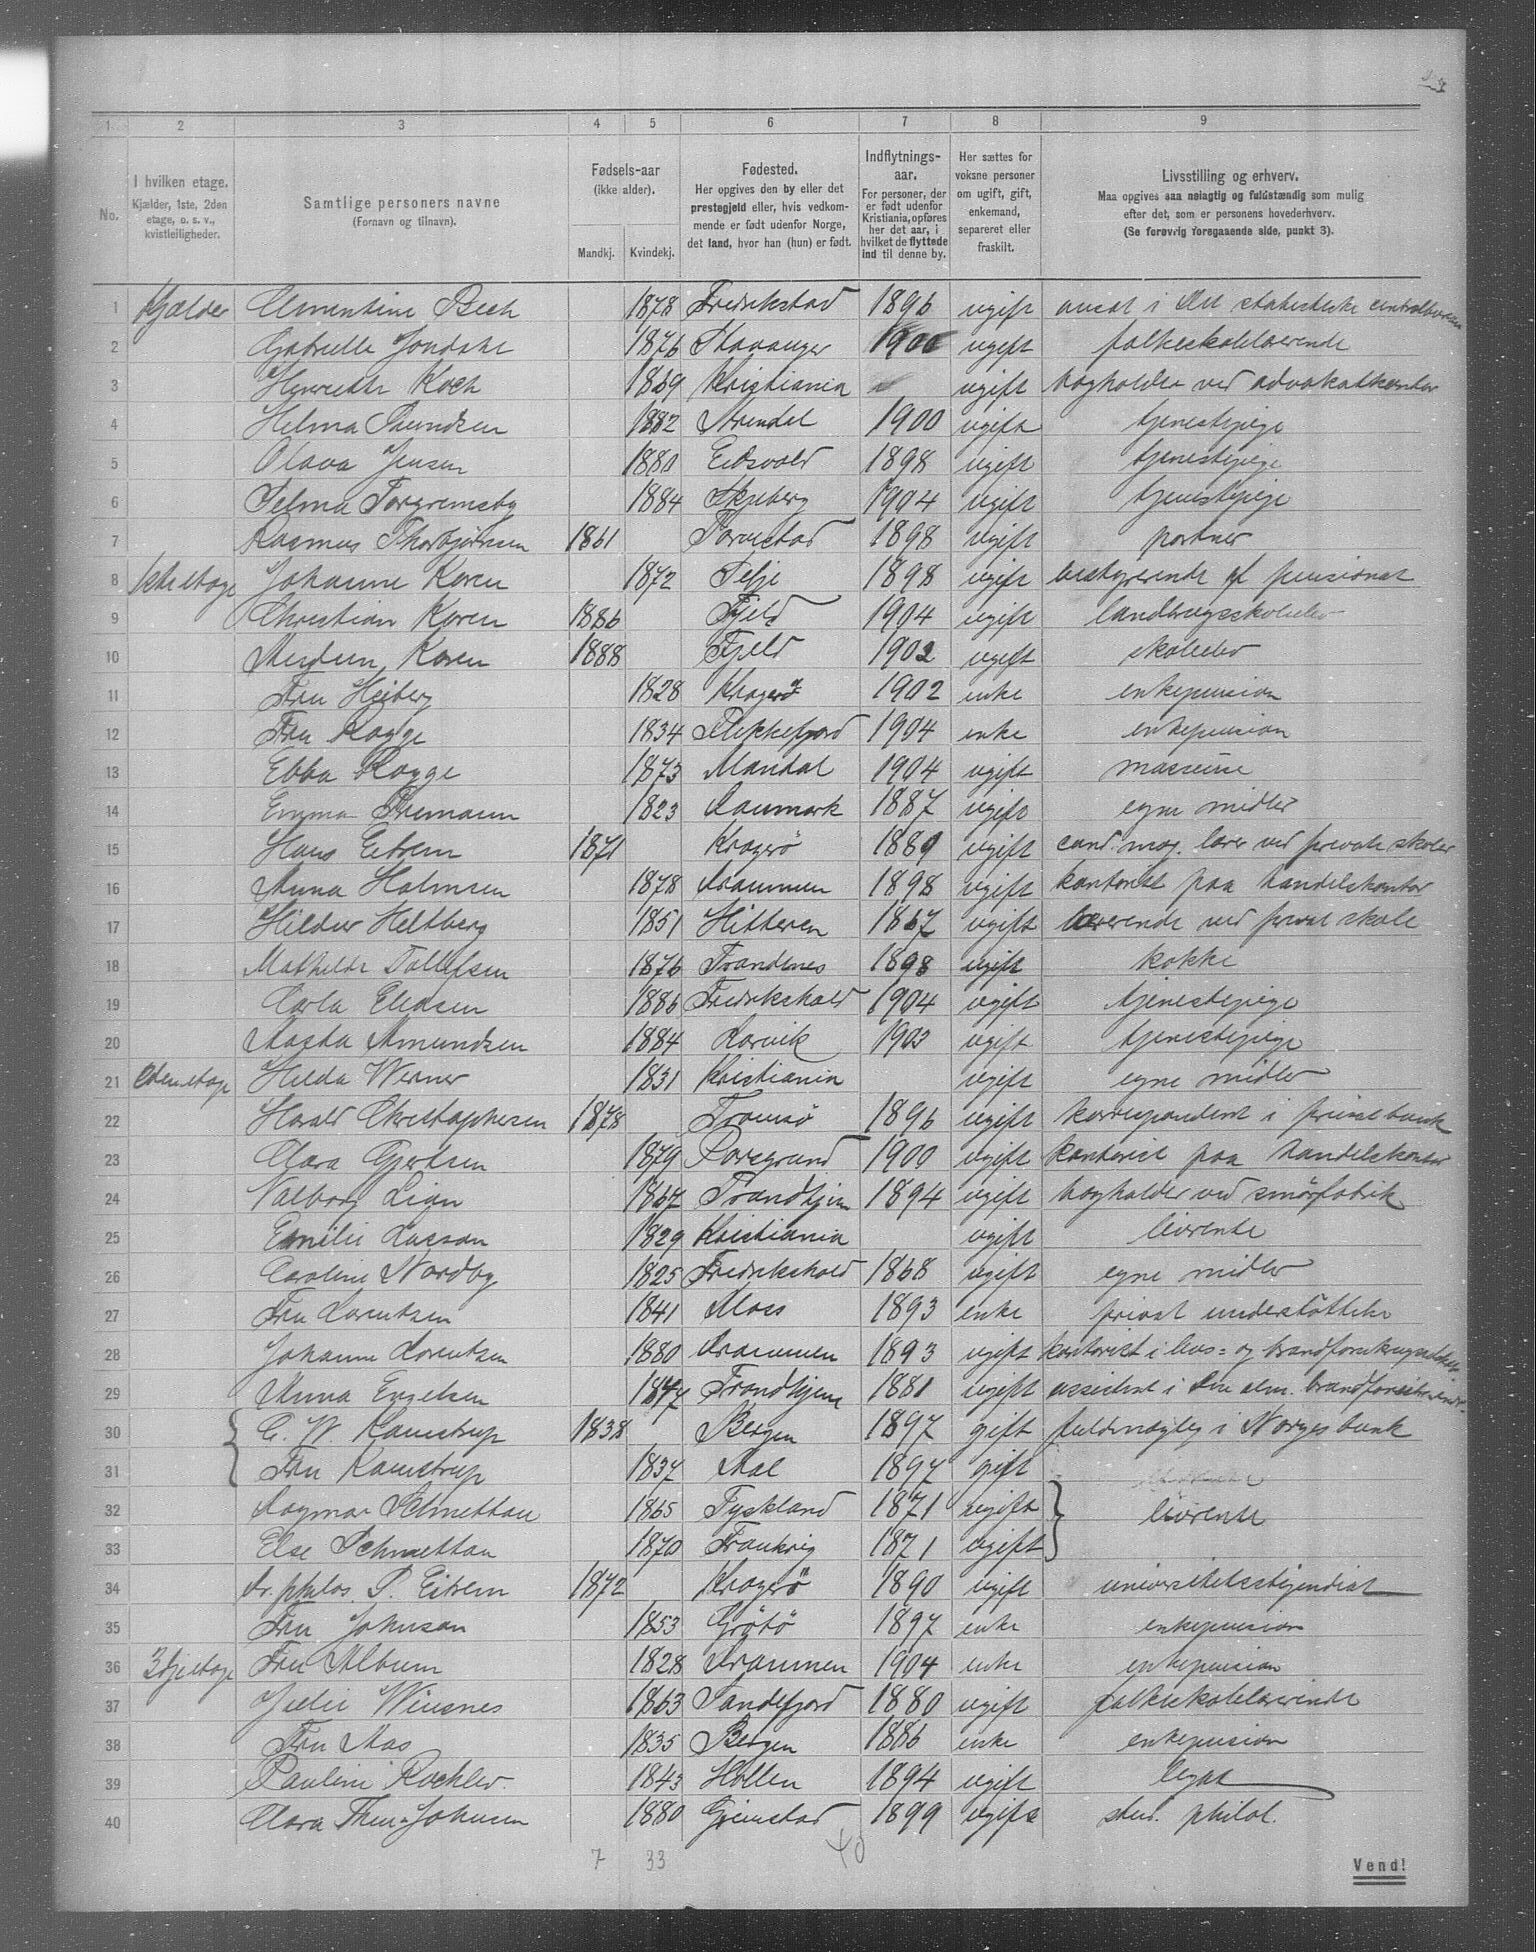 1 2 3 4 5 6 7 8 9
No.
I hvilken etage.
Kjælder, 1ste, 2den
etage, o. s. v.,
kvistleiligheder.
Samtlige personers navne
(Fornavn og tilnavn).
Fødsels-aar
(ikke alder).
Mandkj. Kvindekj.
Fødested.
Her opgives den by eller det
prestegjeld eller, hvis vedkom-
mende er født udenfor Norge,
det land, hvor han (hun) er født.
Indflytnings-
aar.
For personer, der
er født udenfor
Kristiania, opføres
her det aar, i
hvilket de flyttede
ind til denne by.
Her sættes for
voksne personer
om ugift, gift,
enkemand,
separeret eller
fraskilt.
Livsstilling og erhverv.
Maa opgives saa nøiagtig og fuldstændig som mulig
efter det, som er personens hovederhverv.
(Se forøvrig foregaaende side, punkt 3).
1 Kjælder Clementine Bech 1878 Fredrikstad 1896 ugift ansat i Det statistiske centralbureau
2 Gabrielle 1876 Stavanger 1900 ugift folkeskolelærerinde
3 Henriette Koch 1869 Kristiania ugift bogholder ved advokatkontor
4 Helma 1882 Arendal 1900 ugift tjenestepige
5 Olava Jensen 1880 Eidsvold 1898 ugift tjenestepige
6 Selma Torgremsby 1884 Skjeberg 1904 ugift tjenestepige
7 Rasmus Thorbjørnsen 1861 Torvestad 1898 ugift portner
8 1ste etage Johanne Koren 1872 Selje 1898 ugift bestyrerinde af pensionat
9 Christian Koren 1886 Fjeld 1904 ugift landbrugsskoleelev
10 Koren 1888 Fjeld 1902 ugift skoleelev
11 Fru Heiberg 1828 Kragerø 1902 enke enkepension
12 Fru Rogge 1834 Flekkefjord 1904 enke enkepension
13 Ebba Rogge 1873 Mandal 1904 ugift masseuse
14 Emma 1823 Danmark 1887 ugift egne midler
15 Hans Eitrem 1871 Kragerö 1889 ugift cand. mag. lærer ved private skoler
16 Anna Holmsen 1878 Drammen 1898 ugift kontorist paa handelskontor
17 Hildur Heltberg 1851 Hitteren 1867 ugift lærerinde ved privat skole
18 Mathilde Tollefsen 1876 Trondenes 1898 ugift kokke
19 Carla Eliasen 1886 Fredrikshald 1904 ugift tjenestepige
20 Aasta Amundsen 1884 Larvik 1903 ugift tjenestepige
21 2den etage Hilda Werner 1831 Kristiania ugift egne midler
22 Harald Christophersen 1878 Tromsö 1896 ugift korrespondent i privatbank
23 Clara Gjertsen 1879 Porsgrund 1900 ugift kontorist paa handelskontor
24 Valborg Lian 1867 Trondhjem 1894 ugift bogholder ved smörfabrik
25 Emilie Lasson 1829 Kristiania ugift livrente
26 Caroline Nordby 1825 Fredrikshald 1868 ugift egne midler
27 Fru Lorentzen 1841 Moss 1893 enke privat understöttelse
28 Johanne Lorentzen 1880 Drammen 1893 ugift kontorist i livs= og brandforsikringsselskab
29 Anna Engelsen 1847 Trondhjem 1881 ugift assistent i Den alm. brandforsikringsindr.
30 C. W. Kamstrup 1838 Bergen 1897 gift fuldmægtig i Norges bank
31 Fru Kamstrup 1837 Aal 1897 gift
32 Dagmar Schmettau 1865 Tyskland 1871 ugift livrente
33 Else Schmettau 1870 Frankrig 1871 ugift
34 Dr. philos. S. Eitrem 1872 Kragerö 1890 ugift universitetsstipendiat
35 Fru Johnson 1853 Grötö 1897 enke enkepension
36 3dje etage Fru Album 1828 Drammen 1904 enke enkepension
37 Julie Winsnes 1863 Sandefjord 1880 ugift folkeskolelærerinde
38 Fru Aas 1835 Bergen 1886 enke enkepension
39 Pauline Rochler 1843 Hollen 1894 ugift legat
40 Clara Thue-Johnsen 1880 Grimstad 1899 ugift stud. philol.
7 33 40
Vend!